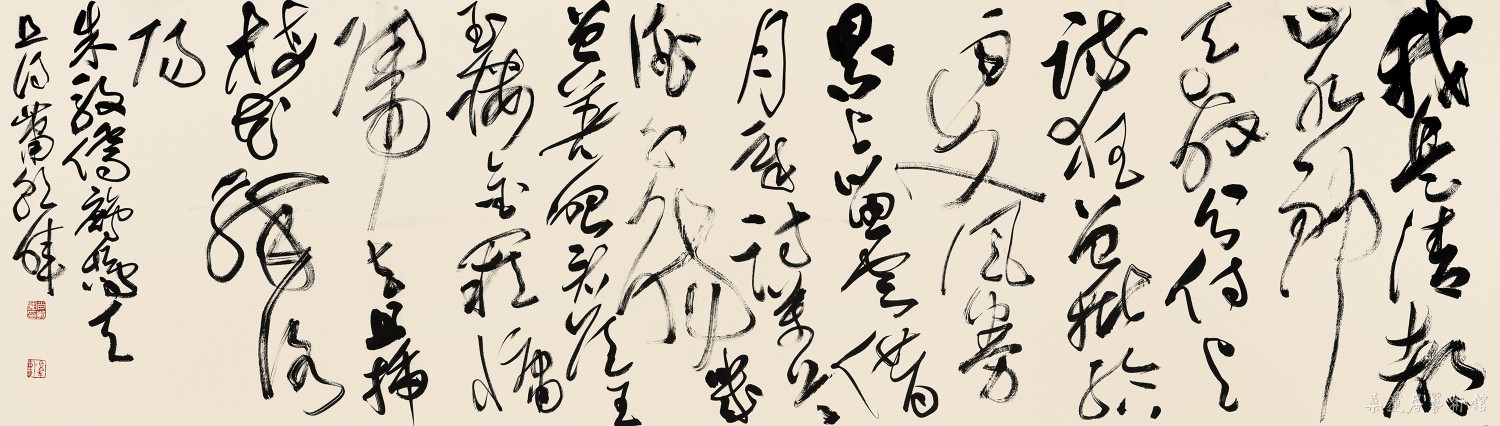 我是清都
山水郎
天教分付與
疏狂曾批給
雨支風券
累上留雲借
月章詩萬首
酒千觴幾
曾著眼看侯王
玉樓金闕慵
歸去且插
梅花醉洛
陽
朱敦儒鷓鴣天